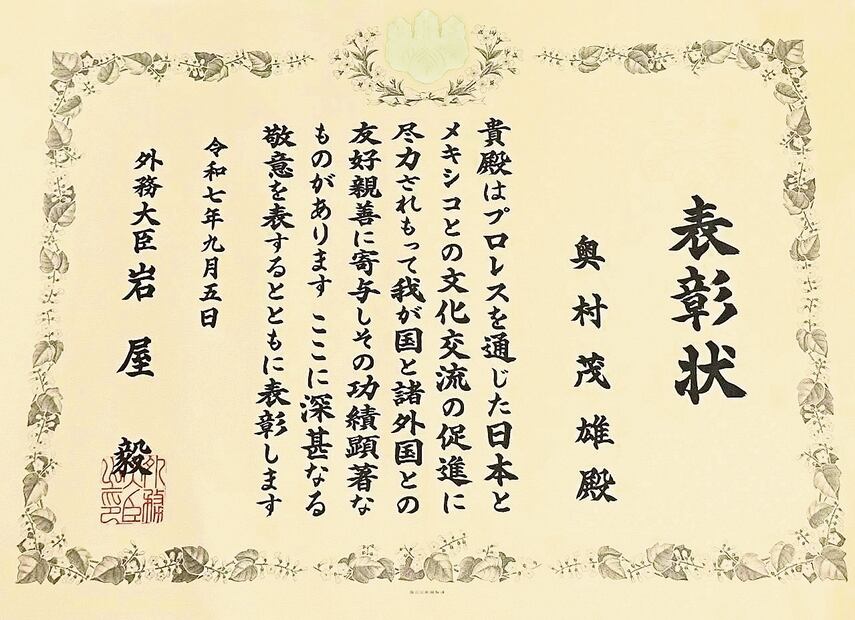 表彰状
奥村茂雄殿
貴殿はプロレスを通じた日本と
メキシコとの文化交流の促進に
尽力されもって我が国と諸外国との
友好親善に寄与しその功績顕著な
ものがあります ここに深甚なる
敬意を表するとともに表彰します
令和七年九月五日
外務大臣 岩屋毅
外務大臣之印